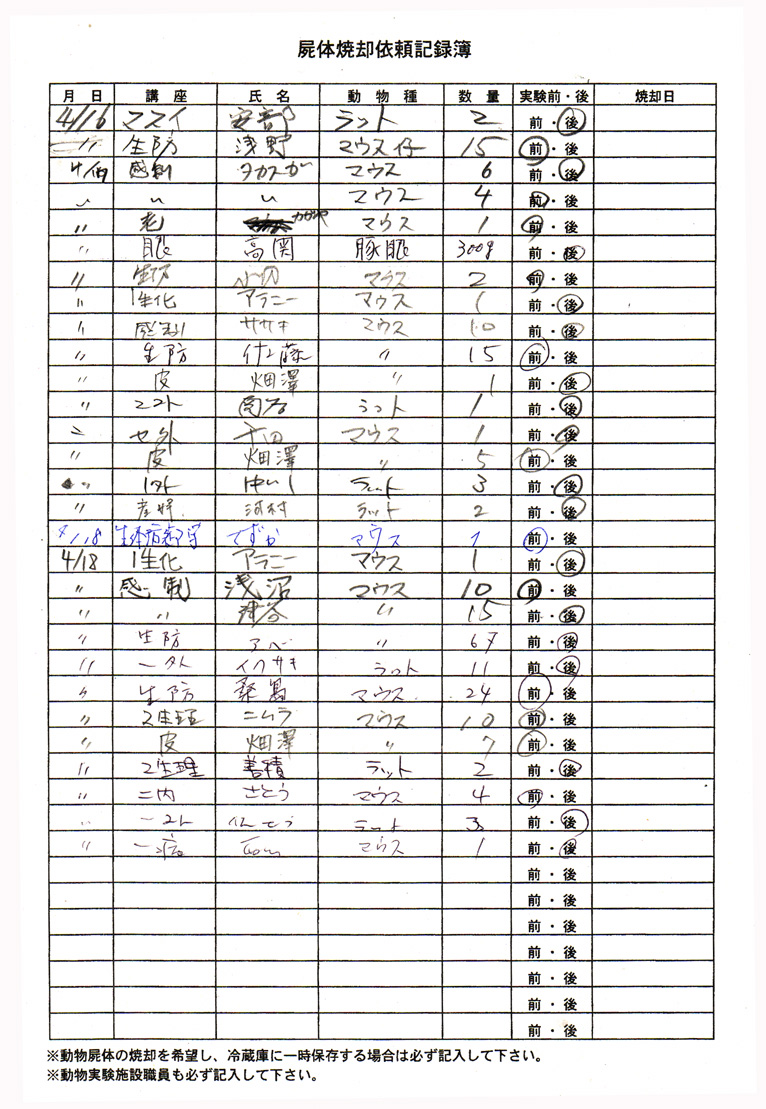 屍体焼却依頼記録簿
月 日 講 座 氏 名 動 物 種 数 量 実験前・後 焼却日
4/16 マスイ 安部 ラット 2 前・後
〃 生防 浅野 マウス仔 15 前・後
感制 タカスガ マウス 6 前・後
〃 〃 マウス 4 前・後
〃 老 カガヤ マウス 1 前・後
〃 眼 高関 豚眼 300g 前・後
〃 生防 マウス 2 前・後
〃 1生化 アラニー マウス 1 前・後
〃 感制 ササキ マウス 10 前・後
〃 生防 佐藤 〃 15 前・後
〃 皮 畑澤 〃 1 前・後
〃 ラット 1 前・後
マウス 1 前・後
〃 皮 畑澤 〃 5 前・後
〃 1外 ラット 3 前・後
〃 産婦 河村 ラット 2 前・後
4/18 生体防御学 てずか マウス 1 前・後
4/18 1生化 アラニー マウス 1 前・後
〃 感制 浅沼 マウス 10 前・後
〃 〃 〃 15 前・後
〃 生防 アベ 〃 67 前・後
〃 一外 イワサキ ラット 11 前・後
〃 生防 桑島 マウス 24 前・後
〃 2生理 ニムラ マウス 10 前・後
〃 皮 畑澤 〃 7 前・後
〃 2生理 善積 ラット 2 前・後
〃 二内 さとう マウス 4 前・後
〃 ラット 3 前・後
〃 一病 マウス 1 前・後
前・後
前・後
前・後
前・後
前・後
前・後
前・後
※動物屍体の焼却を希望し、冷蔵庫に一時保存する場合は必ず記入して下さい。
※動物実験施設職員も必ず記入して下さい。